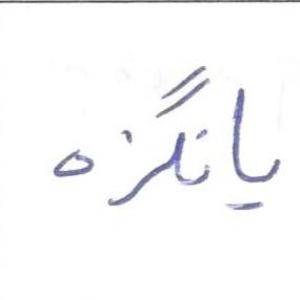 یانگزه